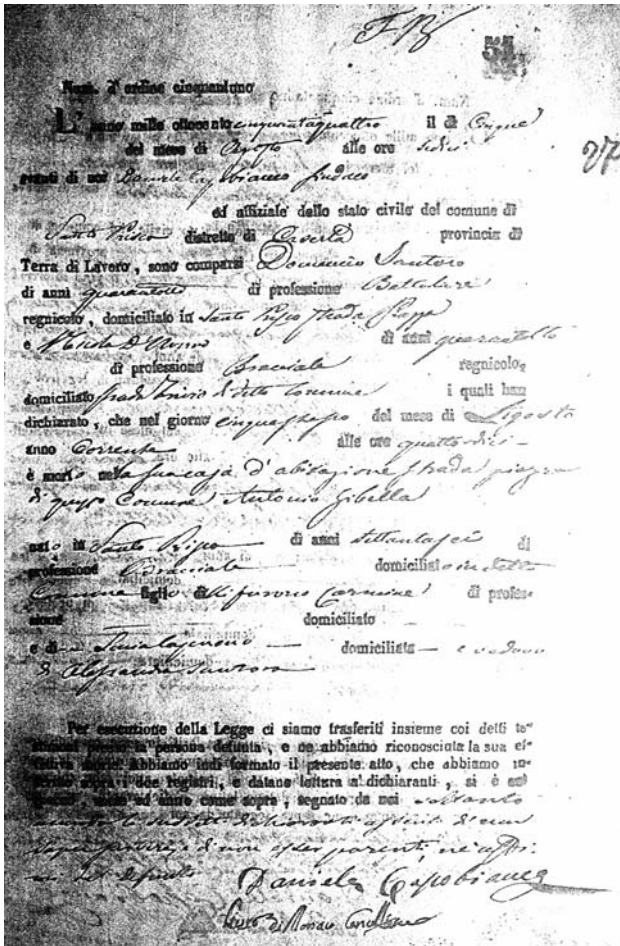 51
Num. d'ordine cinquantuno
L'anno mille ottocento cinquantaquattro il dì Cinque
del mese di Agosto alle ore sedici
avanti di noi Daniele Capobianco Sindaco
ed uffiziale dello stato civile del comune di
Santo Prisco distretto di Caserta provincia di
Terra di Lavoro, sono comparsi Domenico Santoro
di anni quarantotto di professione
regnicolo, domiciliato in Santo Prisco strada
e Nicola D'Monaco di anni quarantotto
di professione Bracciale regnicolo,
domiciliato strada Trivio di detto Comune i quali han
dichiarato, che nel giorno cinque stesso del mese di Agosto
anno Corrente alle ore quattordici
è morto nella sua casa d'abitazione strada piazza
di questo Comune Antonio Gibella
nato in Santo Prisco di anni settantasei di
professione Bracciale domiciliato in detto
Comune figlio di furono Carmine di profes-
sione domiciliato
e di domiciliata e vedovo
di Alessandra Santoro
Per esecuzione della Legge ci siamo trasferiti insieme coi detti te-
stimoni presso la persona defunta, e ne abbiamo riconosciuta la sua ef-
fettiva morte. Abbiamo indi formato il presente atto, che abbiamo in-
scritto sopra i due registri, e datane lettura a' dichiaranti, si è nel
giorno, mese ed anno come sopra, segnato da noi soltanto
di non
saper scrivere, e di non esser parenti, nè affi-
ni del defunto
Daniele Capobianco
di Monaco Cancelliere